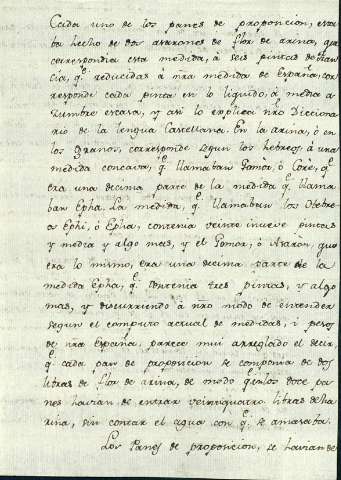 Cada uno de los panes de proposicion, esta
ba hecho de dos asarones de flor de arina, que
correspondia esta medida, â seis pintas de Fran
cia, q.e reducidas â nra medida de España, cor
responde cada pinta en lo liquido, â media a
zumbre escasa, y asi lo explica nro Dicciona
rio de la lengua Castellana. En la arina, ô en
los granos, corresponde segun los hebreos â una
medida concava, q.e llamaban Gomòr, ô Corè, q.e
era una decima parte de la medida q.e llama
ban Epha. La medida, q.e llamaban los Hebre
os Ephi, ô Epha, contenia veinte inueve pintas
y media y algo mas, y el Gomor, ô Asaròn, que
era lo mismo, era una decima parte de la
medida Epha, q.e contenia tres pintas, y algo
mas, y discurriendo â nro modo de entender
segun el computo actual de medidas, i pesos
de nra España, parece mui arreglado el decir,
q.e cada pan de proposicion se componia de dos
libras de flor de arina, de modo q.e en los doce pa
nes havian de entrar veintiquatro libras de ha
rina, sin contar el agua con q.e se amasaba.
Los Panes de proposicion, se havian de